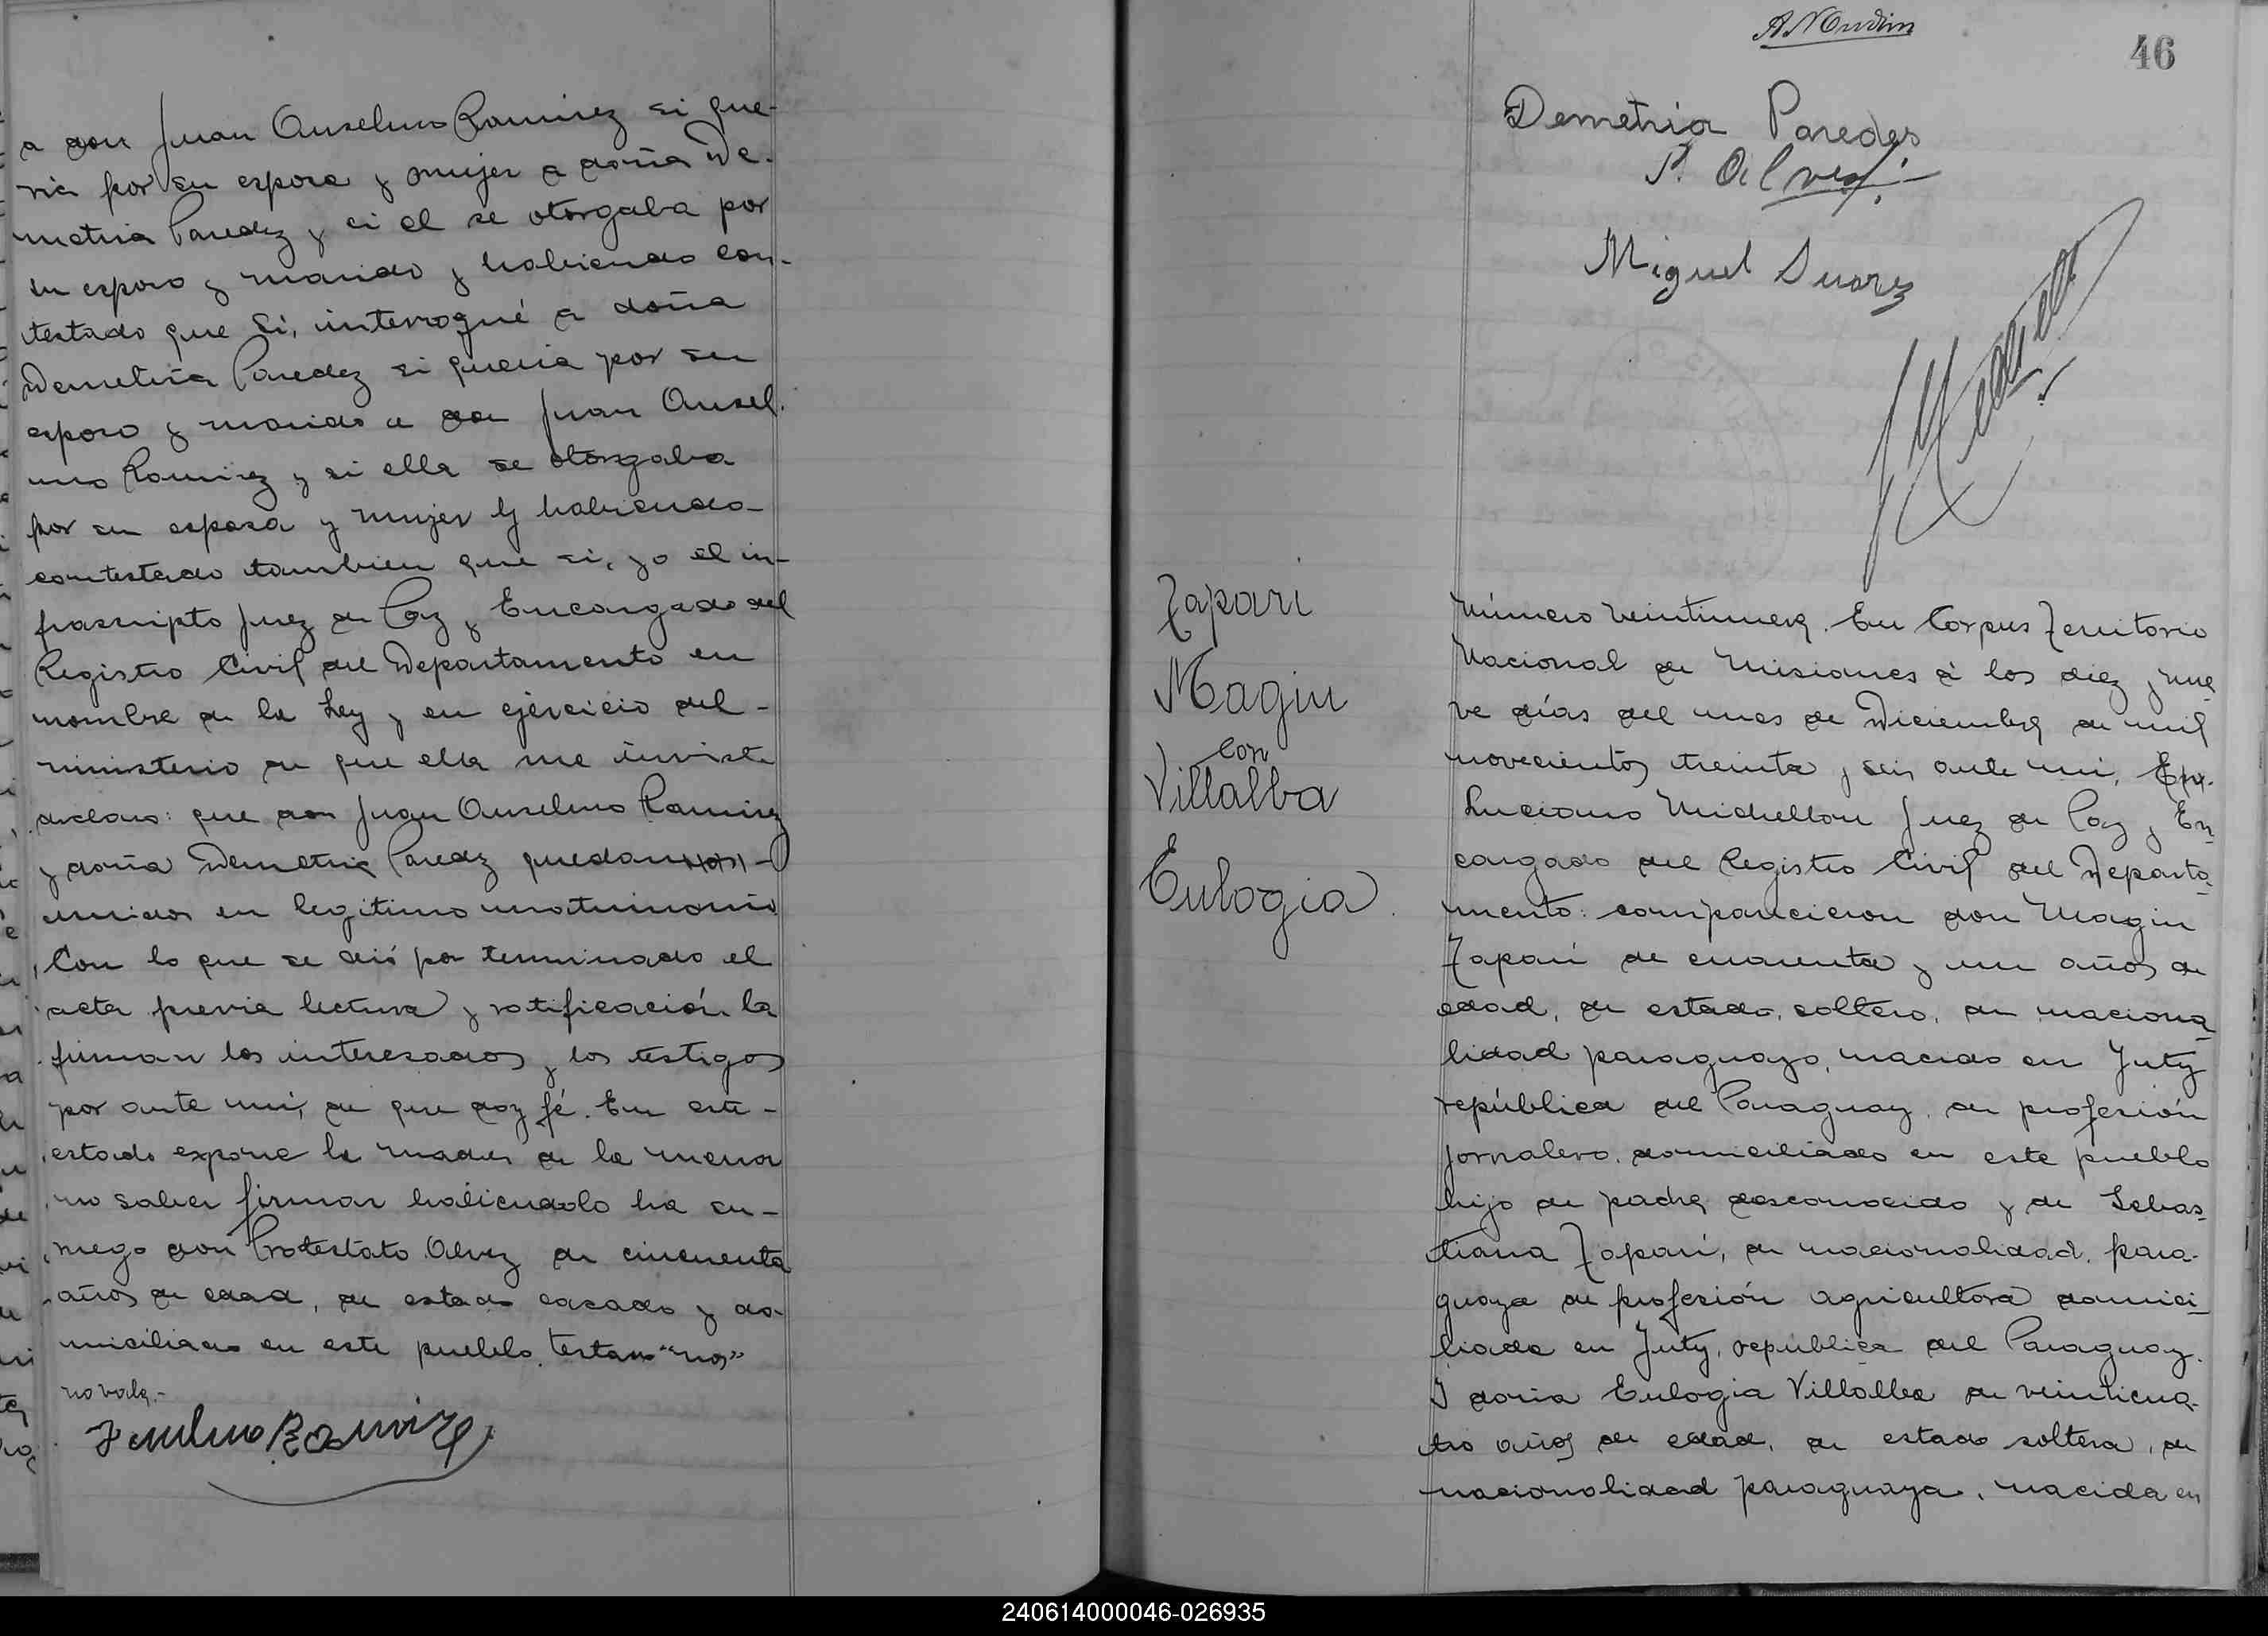 a don Juan Anselmo Ramirez si que-
ria por su esposa y mujer a doña De-
metria Paredez y si el se otorgaba por
su esposo y marido y habiendo con-
testado que si, interrogué a doña
Demetria Paredez si queria por su
esposo y marido a don Juan Ansel-
mo Ramirez y si ella se otorgaba
por su esposa y mujer y habiendo-
contestado tambien que si, yo el in-
frascripto Juez de Paz y Encargado del
Registro Civil del Departamento en
nombre de la Ley y en ejercicio del-
ministerio de que ella me inviste
declaro: que don Juan Anselmo Ramirez
y doña Demetria Paredez quedan -
unidos en legitimo matrimonio
Con lo que se dió por terminado el
acta previa lectura y ratificación la
firman los interesados y los testigos
por ante mi, de que doy fé. En este-
estado expone la madre de la menor
no saber firmar haciendolo ha su-
ruego don Protestato Alvez de cincuenta
años de edad, de estado casado y do-
miciliado en este pueblo. testado "nos"
no vale.-
Anselmo Ramirez
46
Demetria Paredes
P. Alvez
Miguel Suarez
Zapari
Magin
con
Villalba
Eulogia
Número veintinueve. En Corpus Territorio
Nacional de Misiones á los diez y nue
ve días del mes de Diciembre de mil
novecientos treinta y seis ante mi,
Luciano Michellon Juez de Paz y En
cargado del Registro Civil del Departa-
mento: comparecieron don Magin
Zapari de cuarenta y un años de
edad, de estado soltero, de naciona
lidad paraguayo, nacido en Yuty
república del Paraguay, de profesión
jornalero, domiciliado en este pueblo
hijo de padre desconocido y de Sebas-
tiana Zapari, de nacionalidad para-
guaya de profesión agricultora domici-
liada en Yuty, republica del Paraguay.
Y doña Eulogia Villalba de veinticua-
tro años de edad, de estado soltera, de
nacionalidad paraguaya, nacida en
240614000046-026935